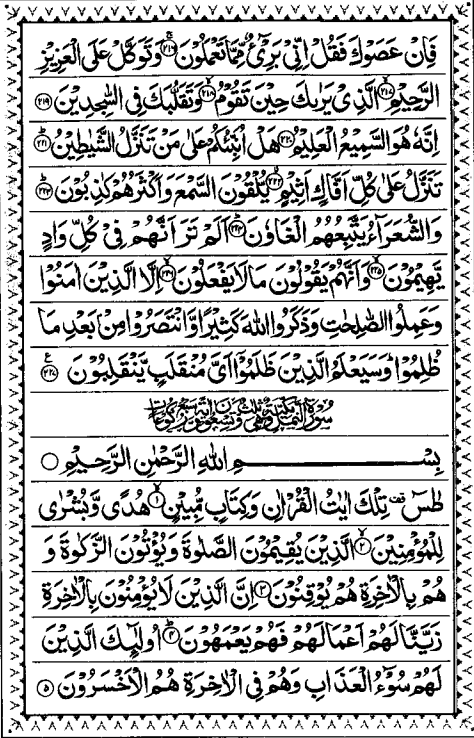 فَاِنْ عَصَوْكَ فَقُلْ اِنِّیْ بَرِیْٓءٌ مِّمَّا تَعْمَلُوْنَ ﴿۲۱۶﴾ وَتَوَكَّلْ عَلَی الْعَزِیْزِ
الرَّحِیْمِ ﴿۲۱۷﴾ الَّذِیْ یَرٰىكَ حِیْنَ تَقُوْمُ ﴿۲۱۸﴾ وَتَقَلُّبَكَ فِی السّٰجِدِیْنَ ﴿۲۱۹﴾
اِنَّهٗ هُوَ السَّمِیْعُ الْعَلِیْمُ ﴿۲۲۰﴾ هَلْ اُنَبِّئُكُمْ عَلٰی مَنْ تَنَزَّلُ الشَّیٰطِیْنُ ﴿۲۲۱﴾
تَنَزَّلُ عَلٰی كُلِّ اَفَّاكٍ اَثِیْمٍ ﴿۲۲۲﴾ یُّلْقُوْنَ السَّمْعَ وَاَكْثَرُهُمْ كٰذِبُوْنَ ﴿۲۲۳﴾
وَالشُّعَرَآءُ یَتَّبِعُهُمُ الْغَاوٗنَ ﴿۲۲۴﴾ اَلَمْ تَرَ اَنَّهُمْ فِیْ كُلِّ وَادٍ
یَّهِیْمُوْنَ ﴿۲۲۵﴾ وَاَنَّهُمْ یَقُوْلُوْنَ مَا لَا یَفْعَلُوْنَ ﴿۲۲۶﴾ اِلَّا الَّذِیْنَ اٰمَنُوْا
وَعَمِلُوا الصّٰلِحٰتِ وَذَكَرُوا اللّٰهَ كَثِیْرًا وَّانْتَصَرُوْا مِنْۢ بَعْدِ مَا
ظُلِمُوْا ؕ وَسَیَعْلَمُ الَّذِیْنَ ظَلَمُوْۤا اَیَّ مُنْقَلَبٍ یَّنْقَلِبُوْنَ ﴿۲۲۷﴾ ع
سُوْرَةُ النَّمْلِ مَكِّیَّةٌ وَّهِیَ ثَلٰثٌ وَّتِسْعُوْنَ اٰیَةً وَّسَبْعُ رُكُوْعَاتٍ
بِسْمِ اللّٰهِ الرَّحْمٰنِ الرَّحِیْمِ
طٰسٓ ۫ تِلْكَ اٰیٰتُ الْقُرْاٰنِ وَكِتَابٍ مُّبِیْنٍ ﴿۱﴾ هُدًی وَّبُشْرٰی
لِلْمُؤْمِنِیْنَ ﴿۲﴾ الَّذِیْنَ یُقِیْمُوْنَ الصَّلٰوةَ وَیُؤْتُوْنَ الزَّكٰوةَ وَ
هُمْ بِالْاٰخِرَةِ هُمْ یُوْقِنُوْنَ ﴿۳﴾ اِنَّ الَّذِیْنَ لَا یُؤْمِنُوْنَ بِالْاٰخِرَةِ
زَیَّنَّا لَهُمْ اَعْمَالَهُمْ فَهُمْ یَعْمَهُوْنَ ﴿۴﴾ اُولٰٓئِكَ الَّذِیْنَ
لَهُمْ سُوْٓءُ الْعَذَابِ وَهُمْ فِی الْاٰخِرَةِ هُمُ الْاَخْسَرُوْنَ ﴿۵﴾